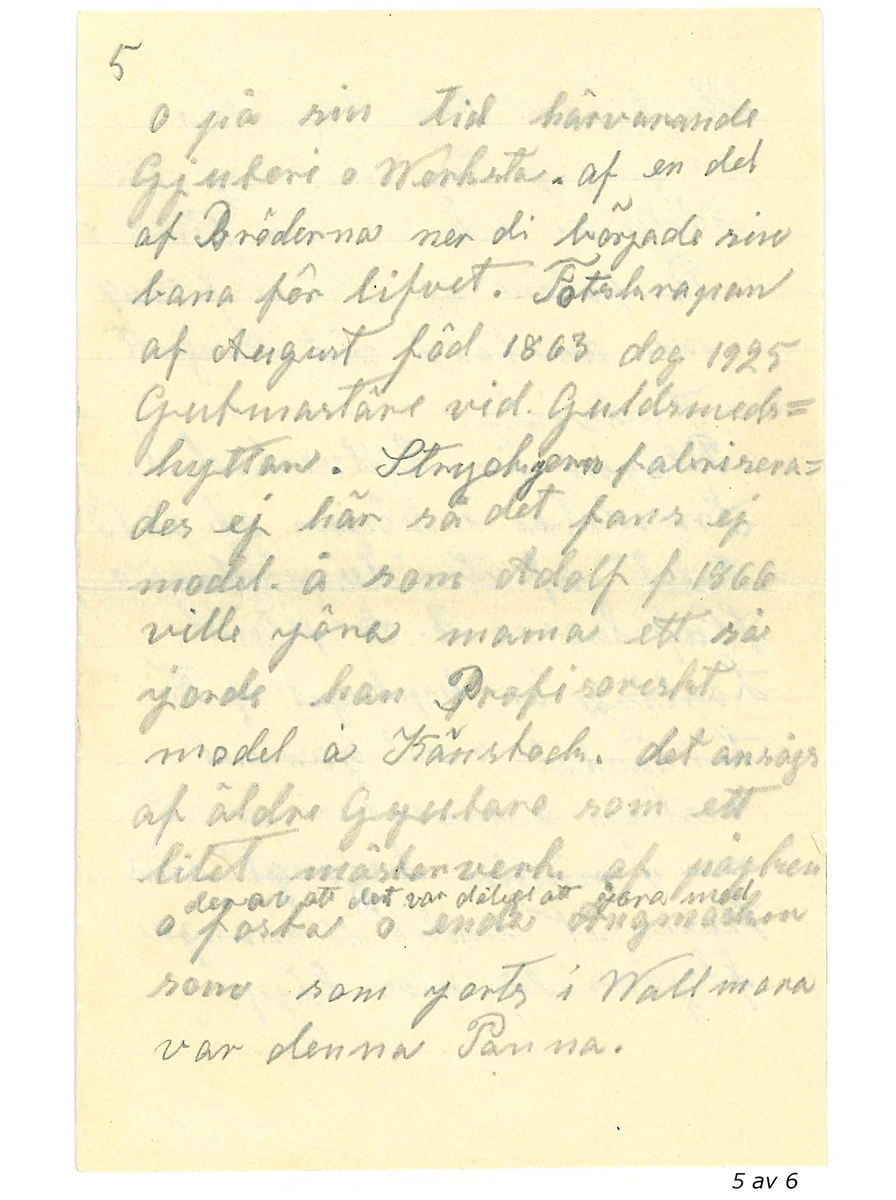 5
o på sin tid härvarande
Gjuteri o Werksta. af en del
af Bröderna ner di började sin
bana för lifvet. Fotskrapan
af August föd 1863 dog 1925
Gutmastäre vid. Guldsmeds=
hyttan. Strychjern fabrisera=
des ej här så det fans ej
model. å som Adolf f 1866
ville jöra mama ett så
jorde han Profisoreskt
model å Kärnstock. det ansågs
af äldre Gjutare som ett
litet mästerverk af pojken
derav att det var dåligt att göra med
o fosta o enda Ångmaskin
som som jorts i Wallmora
var denna Panna.
5 av 6